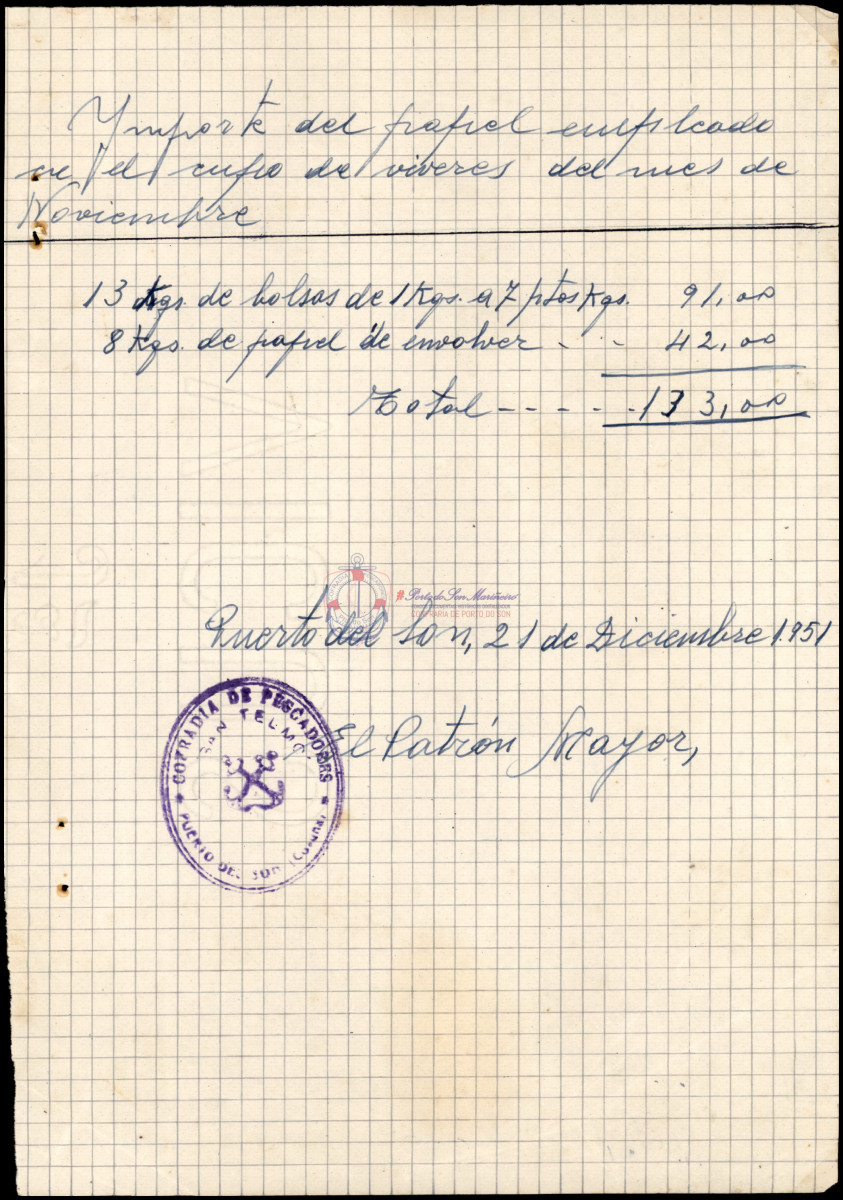 Ymporte del papel empleado
en el cupo de viveres del mes de
Noviembre
13 kgs. de bolsas de 1 Kgs. a 7 ptas kgs. 91,00
8 kgs. de papel de envolver - - 42,00
Total - - - - - 133,00
#PortodoSonMariñeiro
CONFRARÍA DE PORTO DO SON
Puerto del Son, 21 de Diciembre 1.951
El Patrón Mayor,
COFRADIA DE PESCADORES
SAN TELMO
PUERTO DEL SON (Coruña)